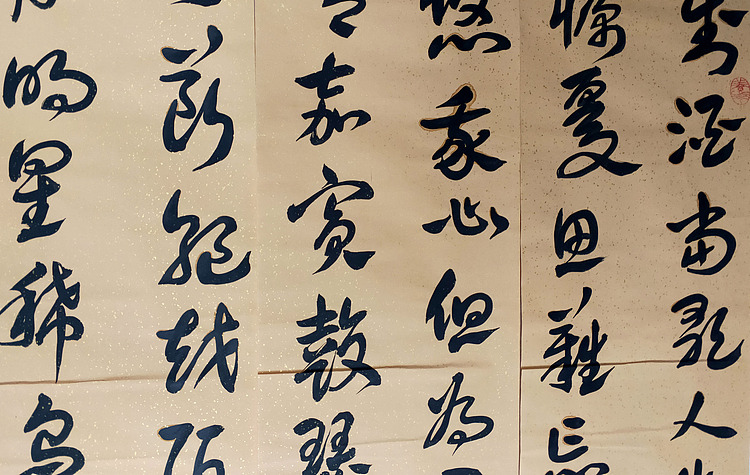 對酒當歌人
慷憂思難忘
悠我心但為
嘉賓鼓瑟
断絕越陌
明星稀烏